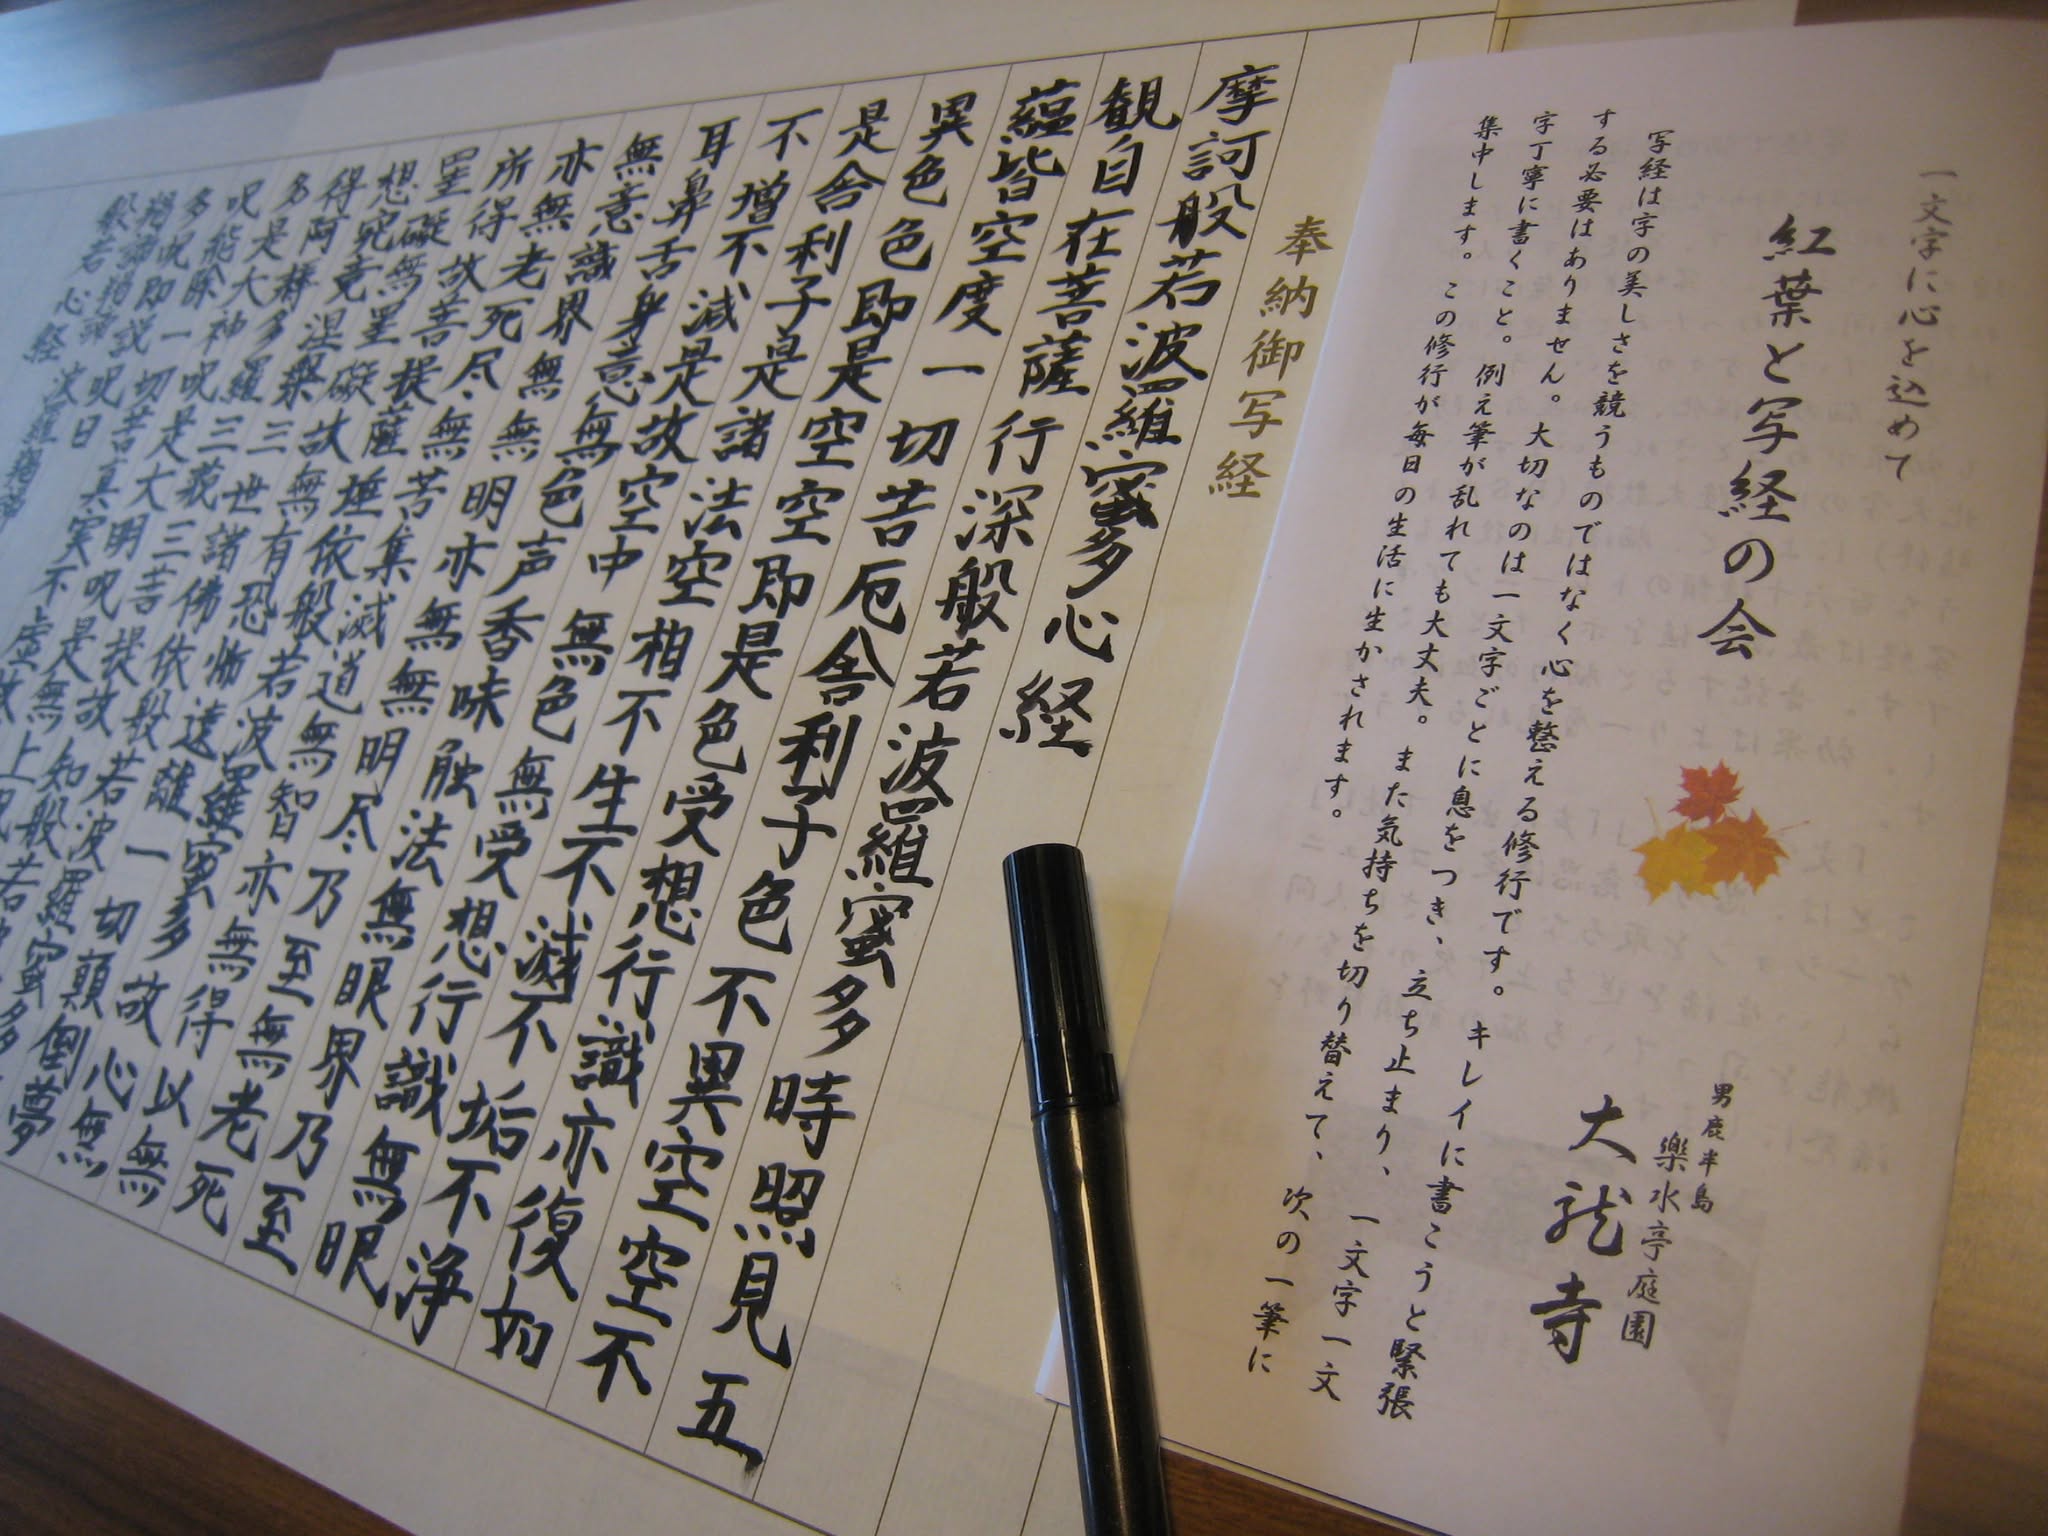 一文字に心を込めて
紅葉と写経の会
写経は字の美しさを競うものではなく心を整える修行です。キレイに書こうと緊張
する必要はありません。大切なのは一文字ごとに息をつき、立ち止まり、一文字一文
字丁寧に書くこと。例え筆が乱れても大丈夫。また気持ちを切り替えて、次の一筆に
集中します。この修行が毎日の生活に生かされます。
男鹿半島
樂水亭庭園
大龍寺
奉納御写経
摩訶般若波羅蜜多心経
観自在菩薩行深般若波羅蜜多時照見五
蘊皆空度一切苦厄舎利子色不異空空不
異色色即是空空即是色受想行識亦復如
是舎利子是諸法空相不生不滅不垢不浄
不増不減是故空中無色無受想行識無眼
耳鼻舌身意無色声香味触法無眼界乃至
無意識界無無明亦無無明尽乃至無老死
亦無老死尽無苦集滅道無智亦無得以無
所得故菩提薩埵依般若波羅蜜多故心無
罣礙無罣礙故無有恐怖遠離一切顛倒夢
想究竟涅槃三世諸佛依般若波羅蜜多
得阿耨多羅三藐三菩提故知般若
多是大神呪是大明呪是無上呪
呪能除一切苦真実不虚故
多呪即説呪曰
羯諦羯諦 波羅羯諦
般若心経